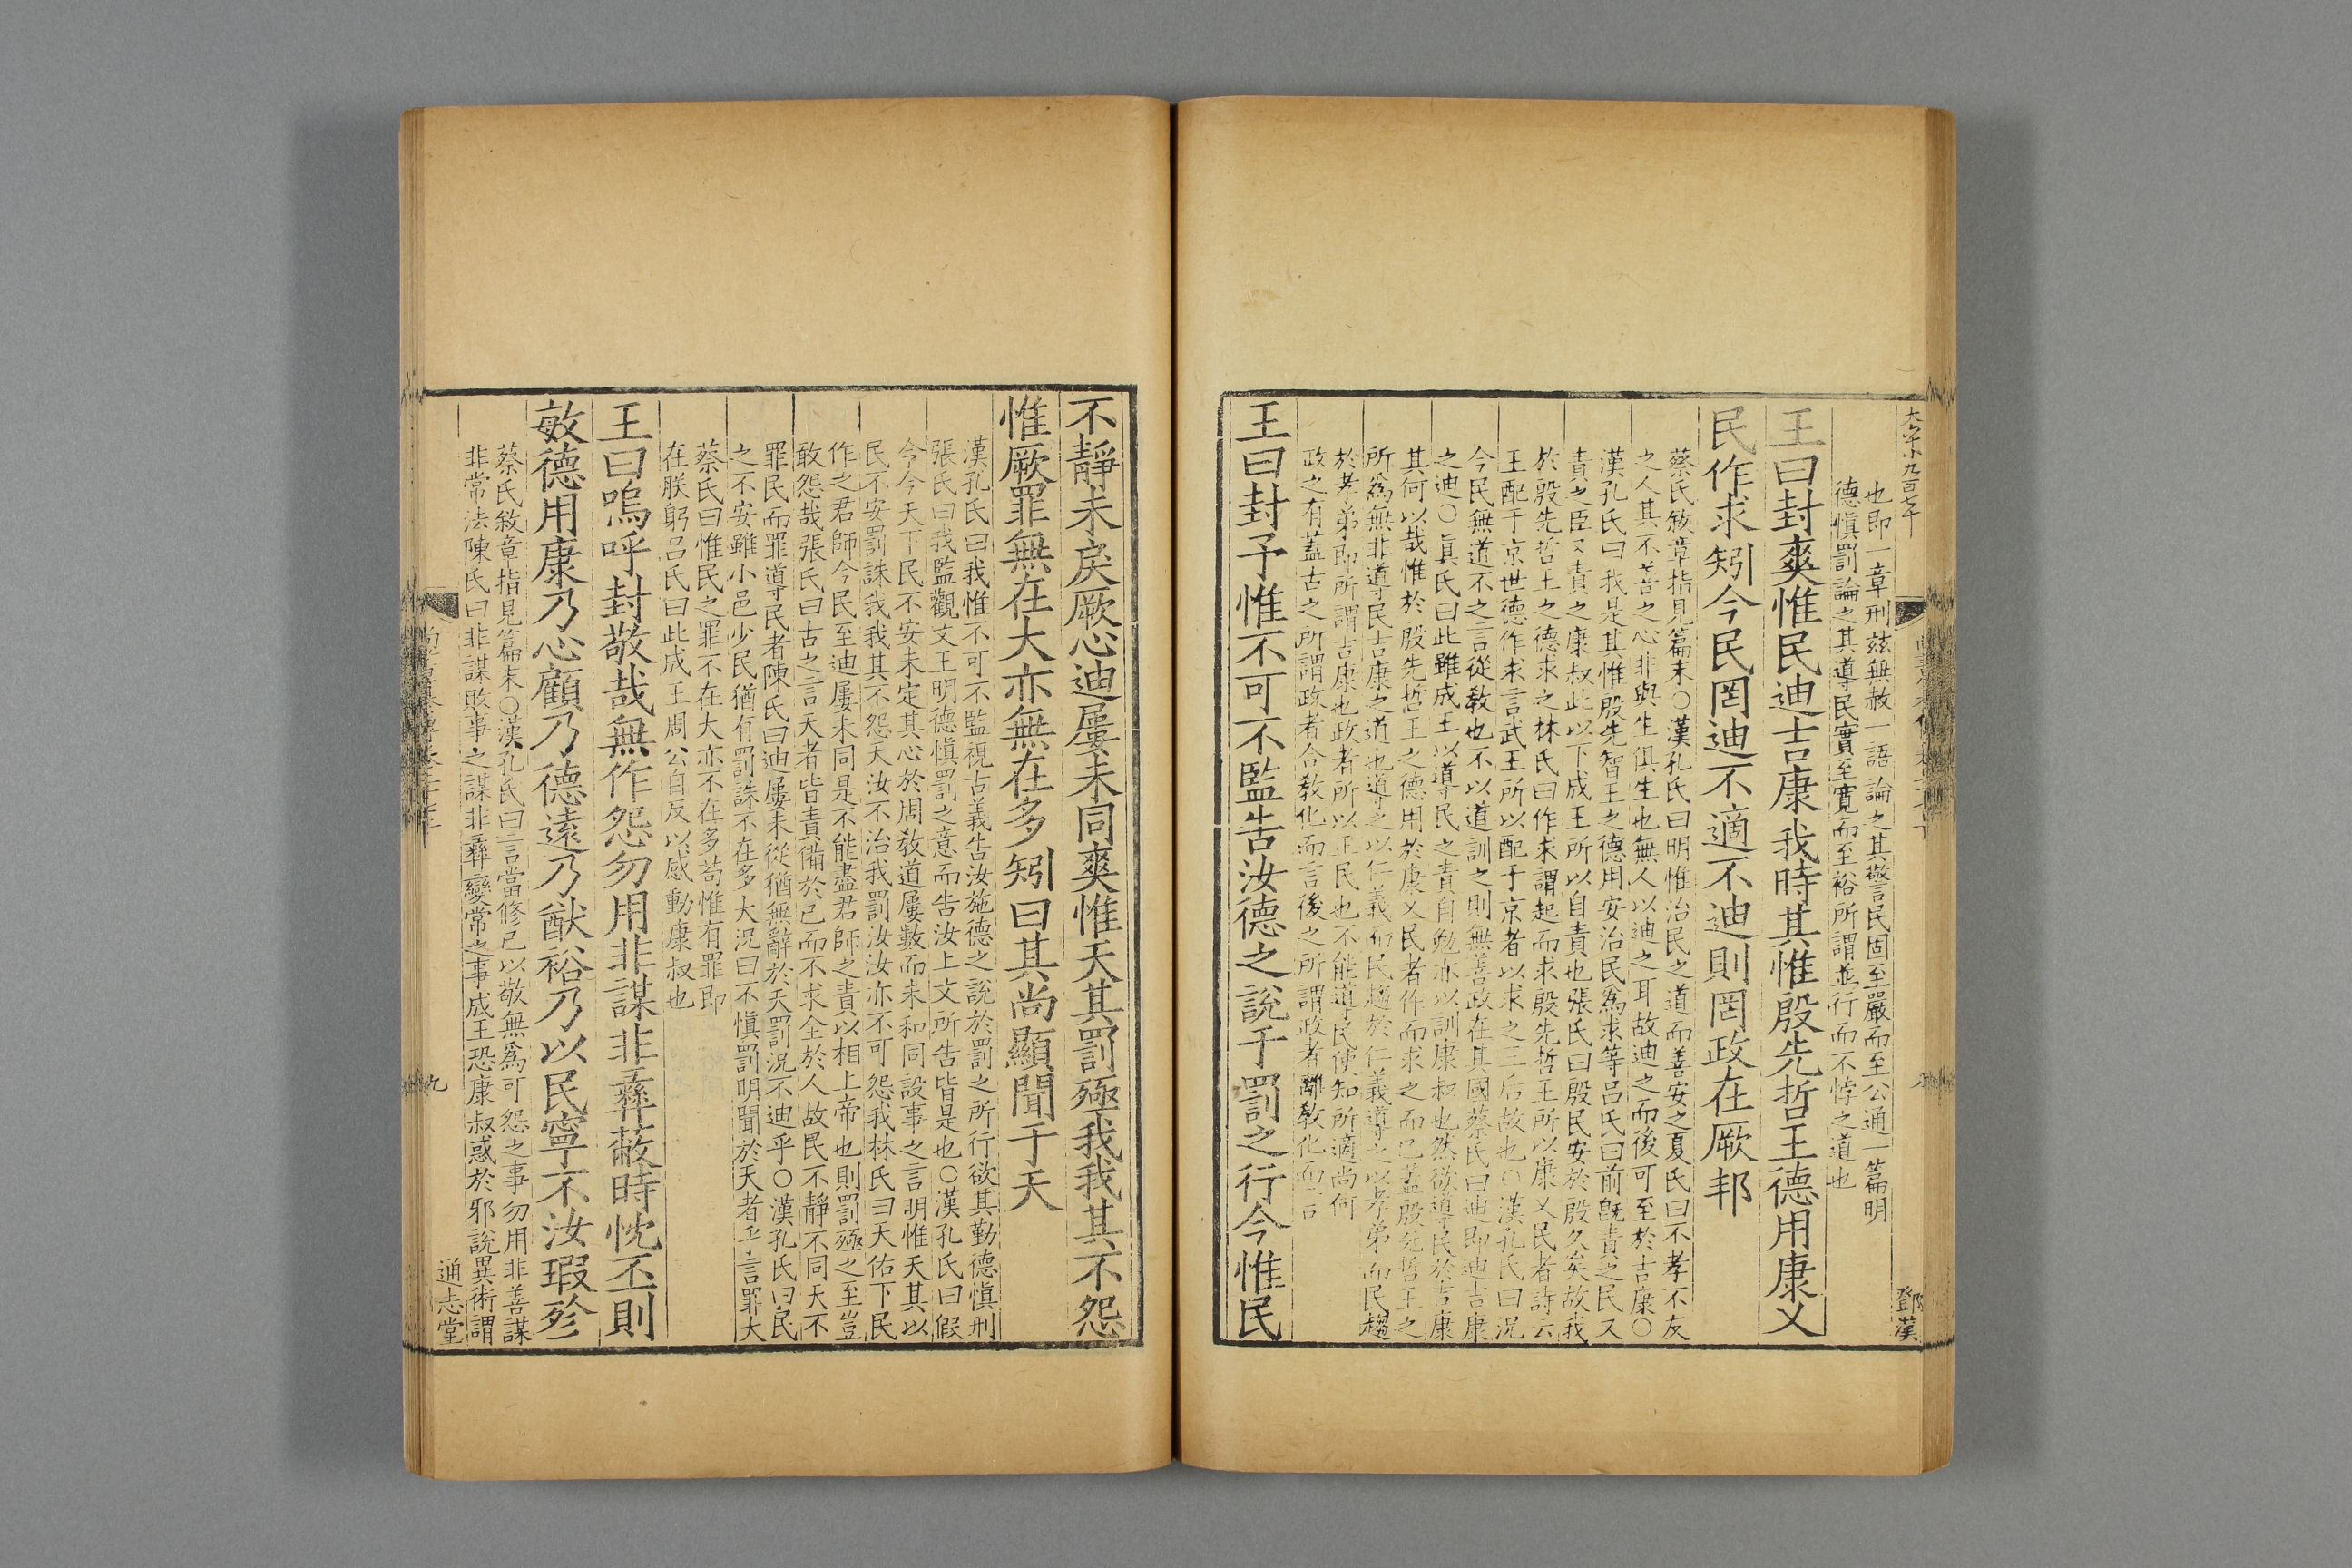 也即一章刑玆無赦一語論之其警民固至嚴而至公通一篇明
德愼罰論之其導民實至寬而至裕所謂並行而不悖之道也
王曰封爽惟民迪吉康我時其惟殷先哲王德用康乂
民作求矧今民罔迪不適不迪則罔政在厥邦
蔡氏敘章指見篇末○漢孔氏曰明惟治民之道而善安之夏氏曰不孝不友
之人其不善之心非與生俱生也無人以迪之耳故迪之而後可至於吉康○
漢孔氏曰我是其惟殷先智王之德用安治民爲求等呂氏曰前旣責之民又
責之臣又責之康叔此以下成王所以自責也張氏曰殷民安於殷久矣故我
於殷先哲王之德求之林氏曰作求謂起而求殷先哲王所以康乂民者詩云
王配于京世德作求言武王所以配于京者以求之三后故也○漢孔氏曰況
今民無道不之言從敎也不以道訓之則無善政在其國蔡氏曰迪即迪吉康
之迪○眞氏曰此雖成王以導民之責自勉亦以訓康叔也然欲導民於吉康
其何以哉惟於殷先哲王之德用於康乂民者作而求之而已蓋殷先哲王之
所爲無非導民吉康之道也導之以仁義而民趨於仁義導之以孝弟而民趨
於孝弟即所謂吉康也政者所以正民也不能導民使知所適尚何
政之有蓋古之所謂政者合敎化而言後之所謂政者離敎化而言
王曰封予惟不可不監告汝德之說于罰之行今惟民
鄧漢
不靜未戾厥心迪屢未同爽惟天其罰殛我我其不怨
惟厥罪無在大亦無在多矧曰其尚顯聞于天
漢孔氏曰我惟不可不監視古義告汝施德之說於罰之所行欲其勤德愼刑
張氏曰我監觀文王明德愼罰之意而告汝上文所告皆是也○漢孔氏曰假
令今天下民不安未定其心於周敎道屢數而未和同設事之言明惟天其以
民不安罰誅我我其不怨天汝不治我罰汝汝亦不可怨我林氏曰天佑下民
作之君師今民至迪屢未同是不能盡君師之責以相上帝也則罰殛之至豈
敢怨哉張氏曰古之言天者皆責備於己而不求全於人故民不靜不同天不
罪民而罪導民者陳氏曰迪屢未從猶無辭於天罰況不迪乎○漢孔氏曰民
之不安雖小邑少民猶有罰誅不在多大況曰不愼罰明聞於天者乎言罪大
蔡氏曰惟民之罪不在大亦不在多苟惟有罪即
在朕躬呂氏曰此成王周公自反以感動康叔也
王曰嗚呼封敬哉無作怨勿用非謀非彝蔽時忱丕則
敏德用康乃心顧乃德遠乃猷裕乃以民寧不汝瑕殄
蔡氏敘章指見篇末○漢孔氏曰言當修己以敬無爲可怨之事勿用非善謀
非常法陳氏曰非謀敗事之謀非彝變常之事成王恐康叔惑於邪說異術謂
九
通志堂